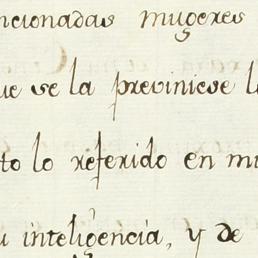 ncionadas mugeres
ue se la previniese l
to lo referido en mi
u inteligencia, y de